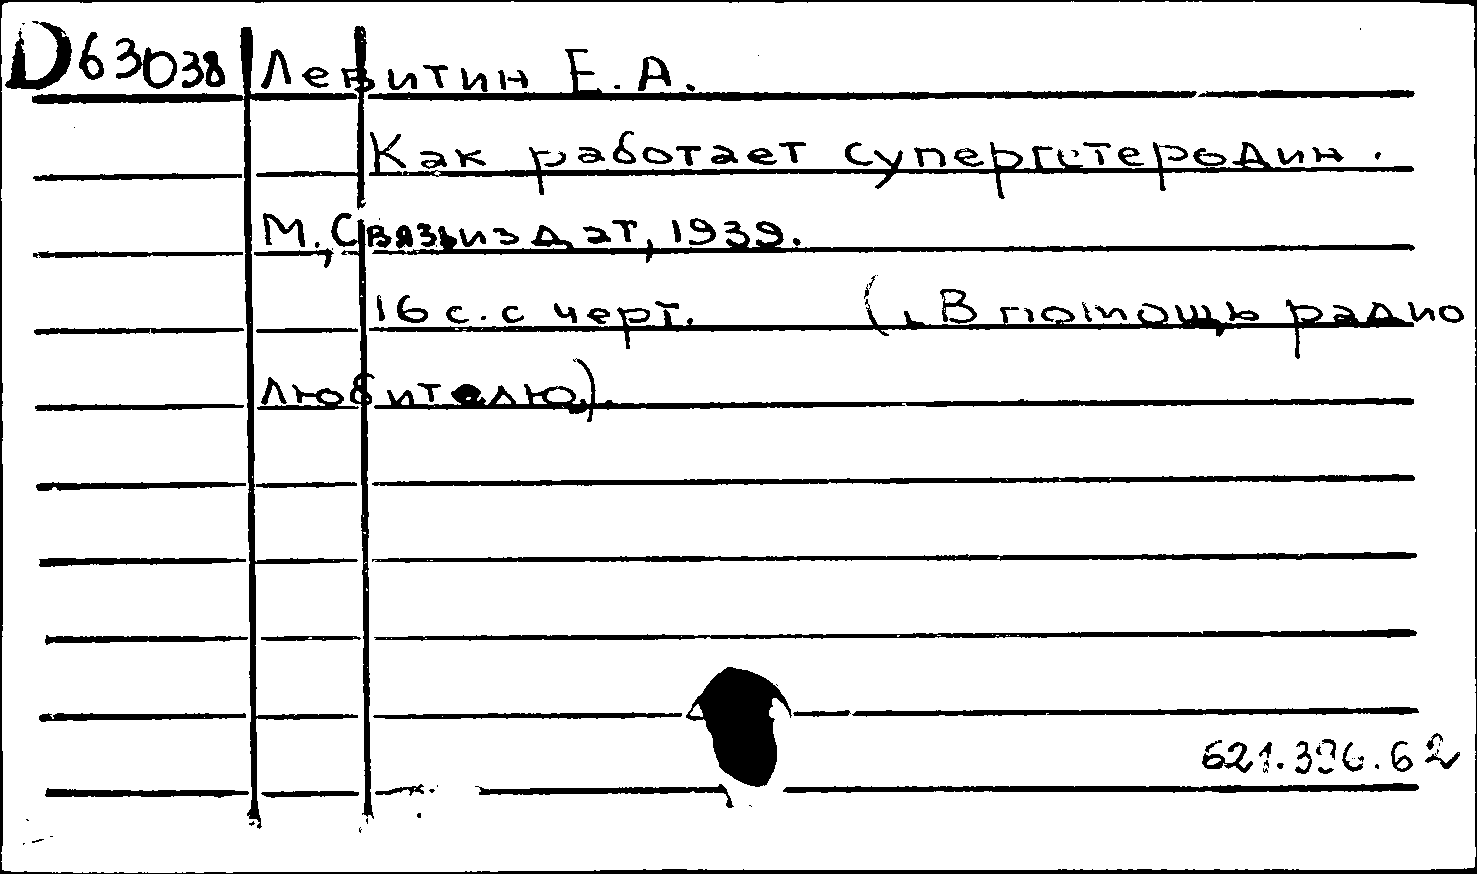 D63038 Левитин Е.А.
Как работает супергетеродин.
М., Связьиздат, 1939.
16 с. с черт. („В помощь радио
любителю“).
621.396.62